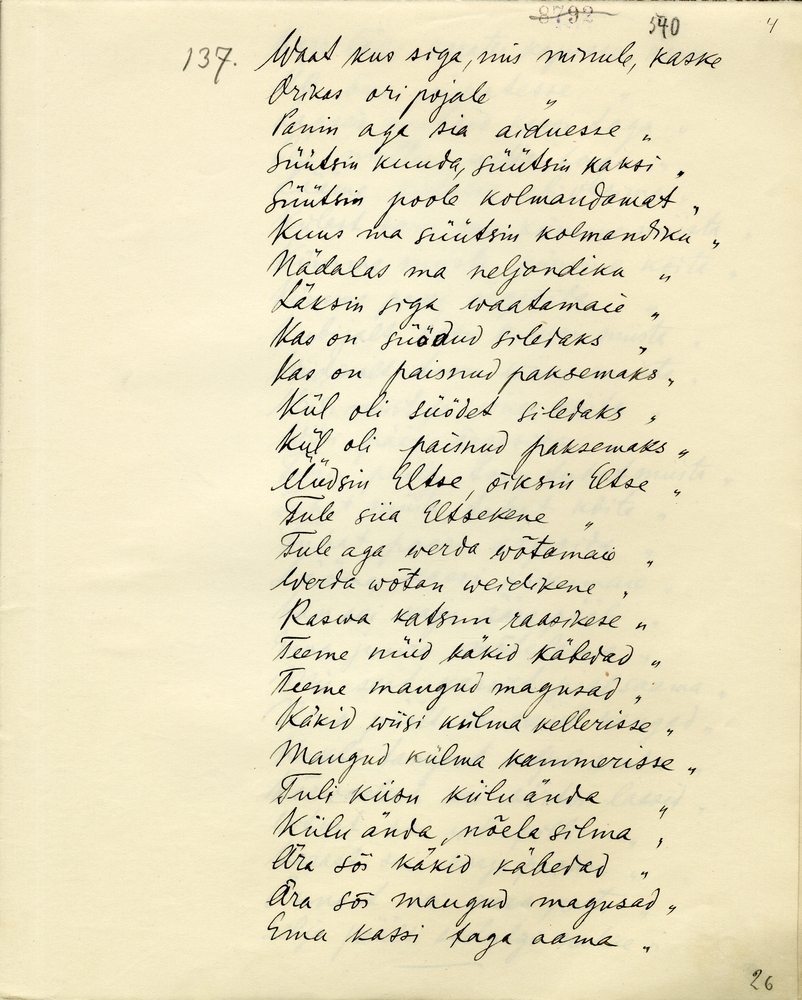 8792
540
4
137. Waat kus siga, mis minule, kaske
Orikas ori pojale "
Panin aga sia aiduesse "
Süütsin kuuda, süütsin kaksi "
Süütsin poole kolmandamat "
Kuus ma süütsin kolmandiku "
Nädalas ma neljandiku "
Läksin siga waatamaie "
Kas on süödud siledaks "
Kas on paisnud paksemaks "
Kül oli süödet siledaks "
Kül oli paisnud paksemaks "
Müdsin Eltse, õiksin Eltse "
Tule siia Eltsekene "
Tule aga werda wõtamaie "
Werda wõtan weidikene "
Raswa katsun raasikese "
Teeme nüid käkid käbedad "
Teeme maugud magusad "
Käkid wiisi külma kellerisse "
Maugud külma kammerisse "
Tuli kiisu kiilu ända "
Kiilu ända, nõela silma "
Ära sõi käkid käbedad "
Ära sõi maugud magusad "
Ema kassi taga aama "
26